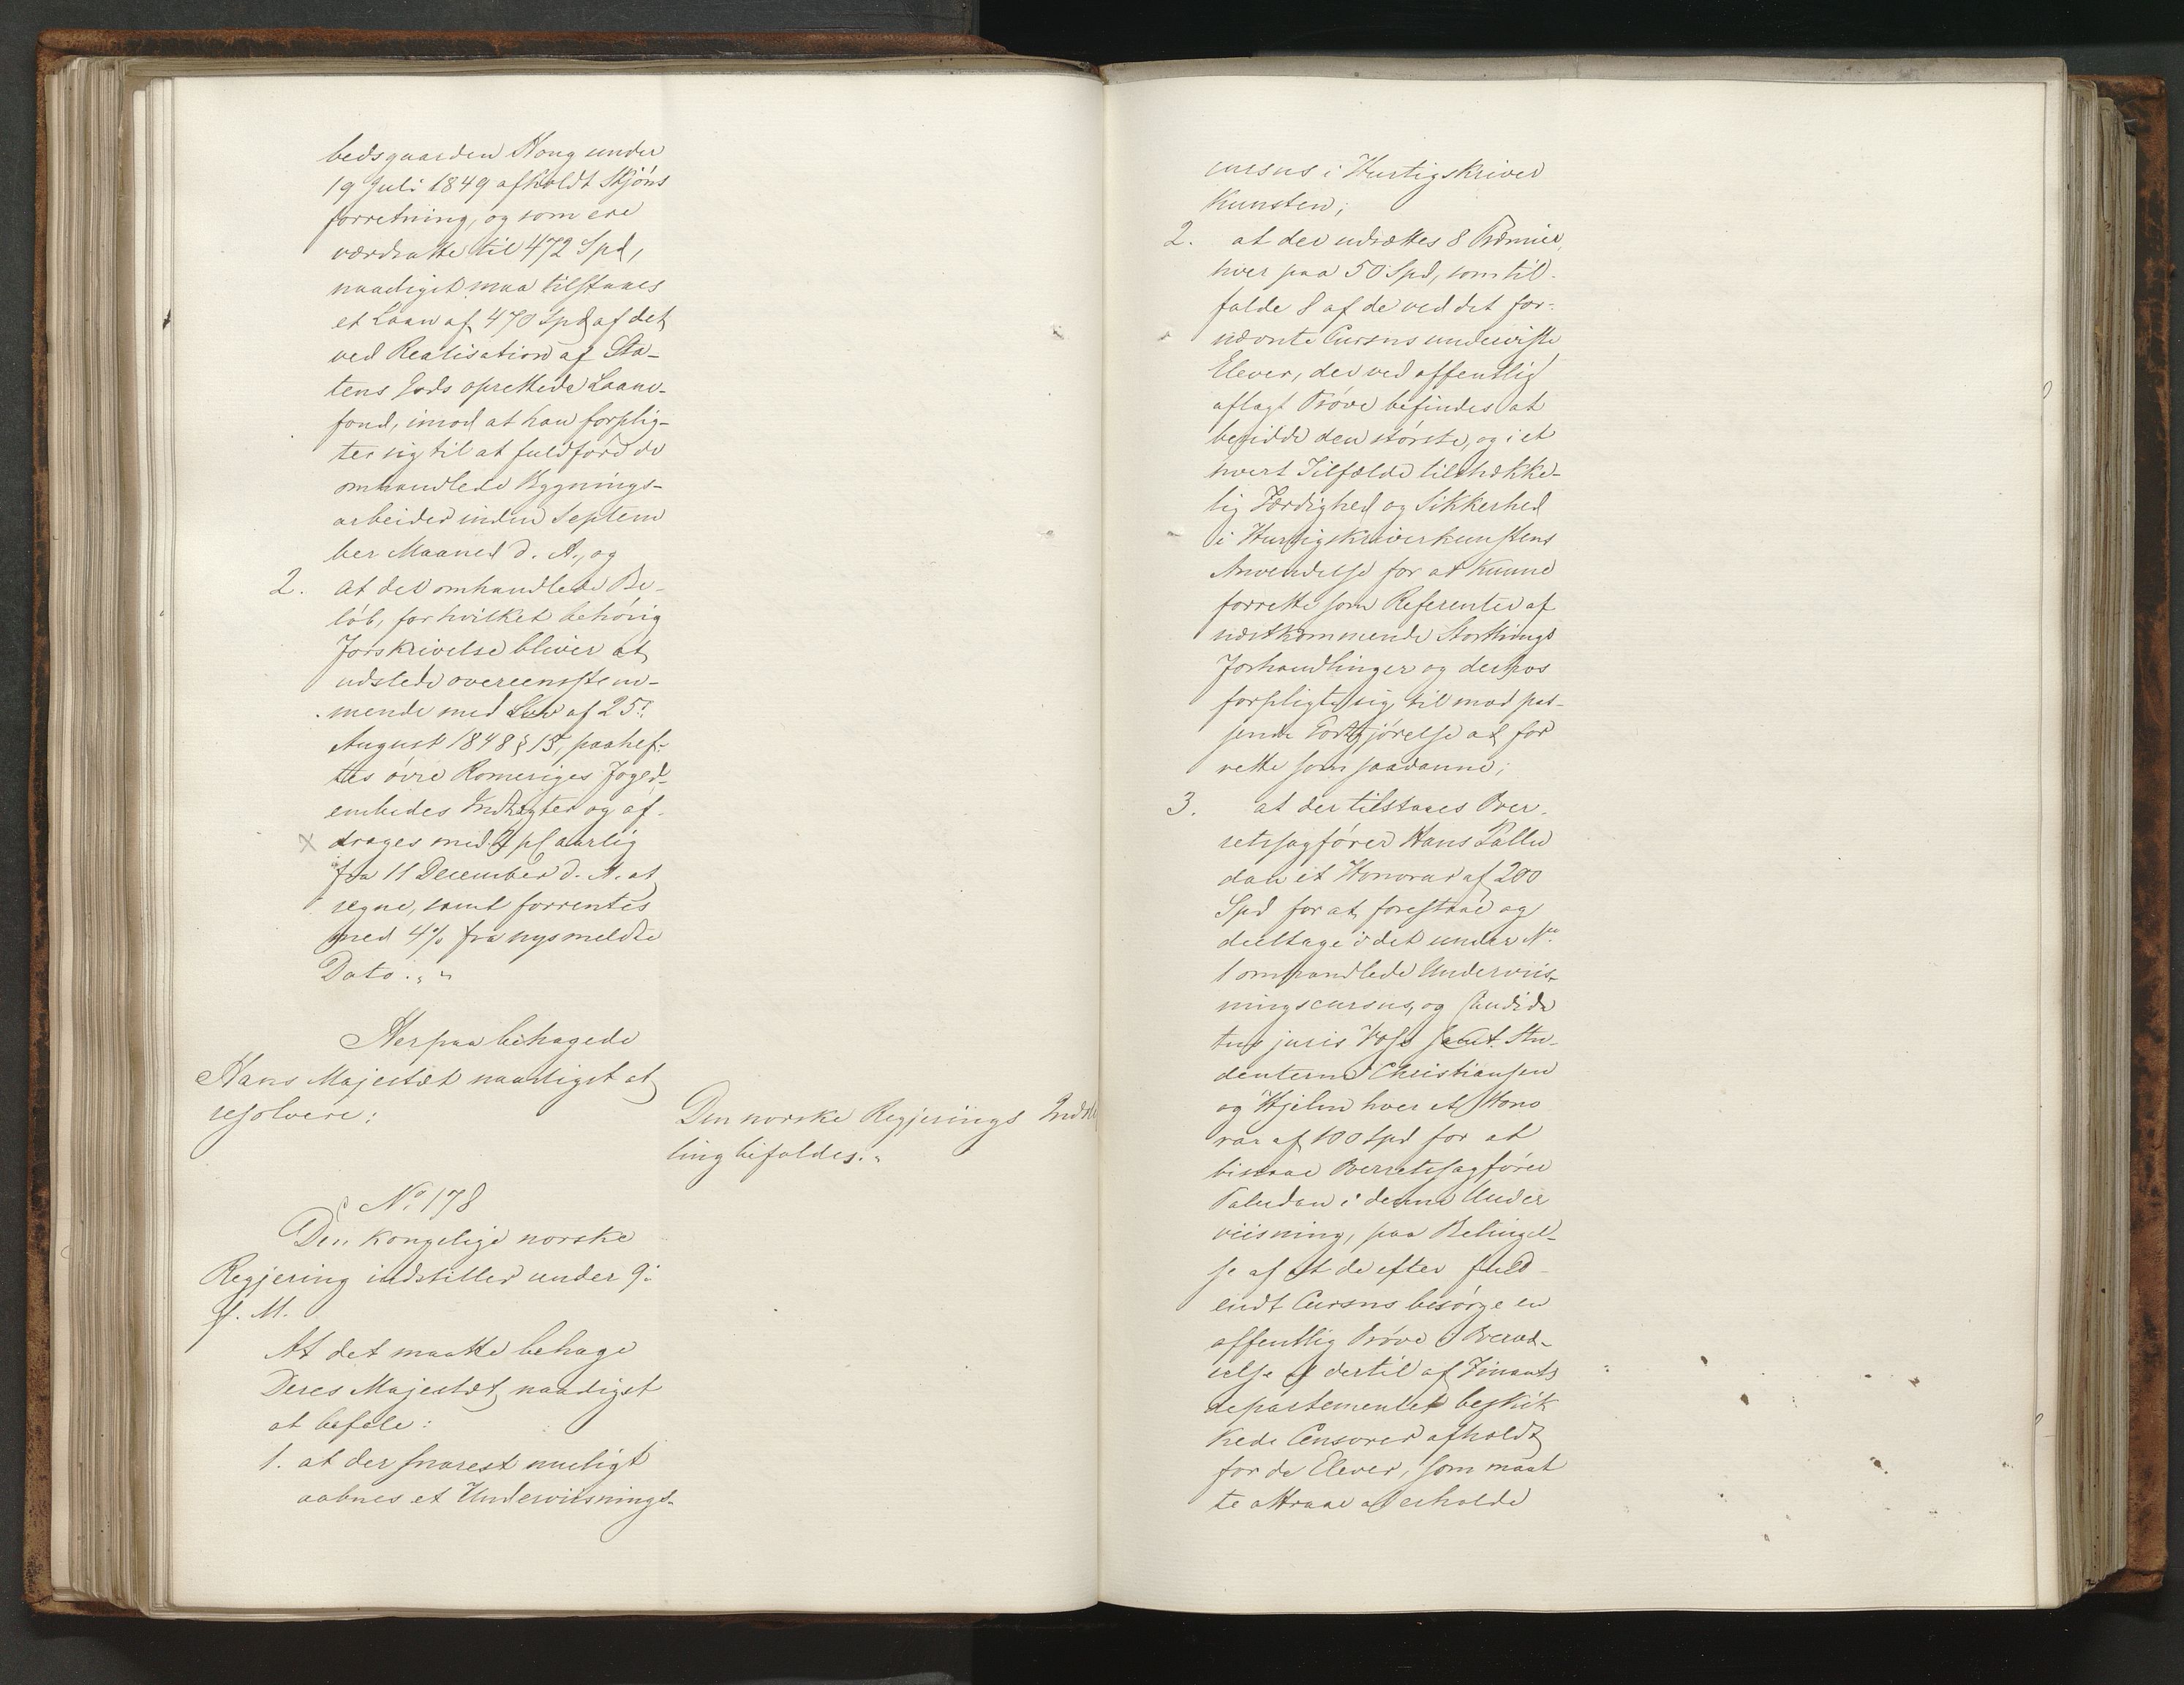 bedsgaarden Houg under
19 Juli 1849 afholdt Skjöns
forretning, og som ere
værdsatte til 472 Spd,
naadigst maa tilstaaes
et Laan af 470 Spd af det
ved Realisation af Sta-
tens Gods oprettede Laane-
fond, imod at han forplig-
ter sig til at fuldföre de
omhandlede Bygnings-
arbeider inden Septem
ber Maaned d. A., og
2. at det omhandlede Be-
löb, for hvilket behörig
Forskrivelse bliver at
udstede overeensstem-
mende med Lov af 25de
August 1848 § 15, paahef-
tes övre Romeriges Foged-
embedes Indtægter og af-
drages med pC aarlig
fra 11 December d. A. at
regne, samt forrentes
med 4% fra nysmeldte
Dato. "
Herpaa behagede
Hans Majestæt naadigst at
resolvere:
Den norske Regjerings Indstil
ling bifaldes. "
No 178
Den kongelige norske
Regjering indstiller under 9de
f. M.
At det maatte behage
Deres Majestæt naadigst
at befale:
1. at der snarest mueligt
aabnes et Underviisnings-
cursus i Hurtigskriver
Kunsten;
2. at der udsættes 8 Præmier,
hver paa 50 Spd, som til-
falde 8 af de ved det for-
nævnte Cursus underviste
Elever, der ved offentlig
aflagt Pröve befindes at
besidde den störste, og i et
hvert Tilfælde tilstrække-
lig Færdighed og Sikkerhed
i Hurtigskriverkunstens
Anvendelse for at kunne
forrette som Referenter af
næstkommende Storthings
Forhandlinger og derhos
forpligte sig til mod pas-
sende Godtgjörelse at for
rette som saadanne;
3. at der tilstaaes Over-
retssagförer Hans Pallu
dan et Honorar af 200
Spd for at forestaae og
deeltage i det under No
1 omhandlede Underviis-
ningscursus, og Candida
tus juris Voss samt Stu-
denterne Christiansen
og Hjelm hver et Hono
rar af 100 Spd for at
bistaae Overretssagförer
Paludan i denne Under
viisning, paa Betingel-
se af at de efter fuld-
endt Cursus besörge en
offentlig Pröve i Overvæ-
relse af dertil af Finants
departementet beskik
kede Censorer afholdt
for de Elever, som maat
te attraae at erholde